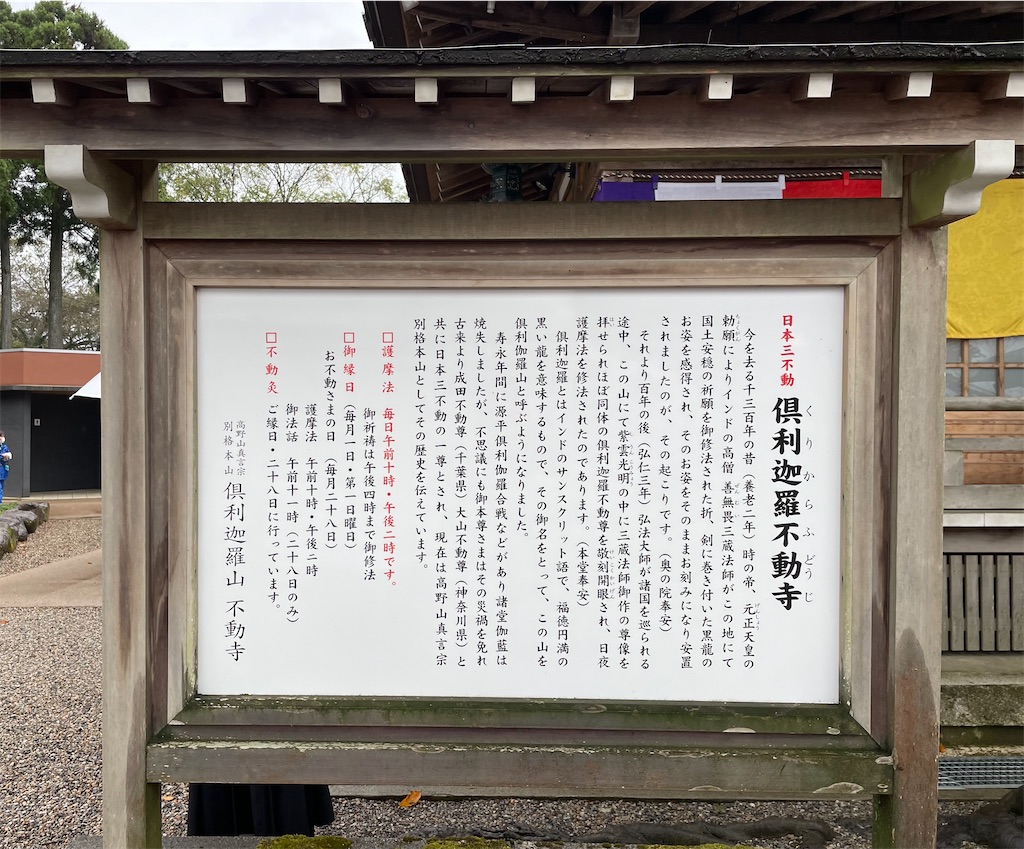 日本三不動 倶利迦羅不動寺
くりからふどうじ
今を去る千三百年の昔（養老二年）時の帝、元正天皇の
げんしょう
勅願によりインドの高僧 善無畏三蔵法師がこの地にて
ちょくがん ぜんむい
国土安穏の祈願を御修法された折、剣に巻き付いた黒龍の
お姿を感得され、そのお姿をそのままお刻みになり安置
されましたのが、その起こりです。（奥の院奉安）
それより百年の後（弘仁三年）弘法大師が諸国を巡られる
途中、この山にて紫雲光明の中に三蔵法師御作の尊像を
拝せられほぼ同体の倶利迦羅不動尊を敬刻開眼され、日夜
はい けいこくかいげん
護摩法を修法されたのであります。（本堂奉安）
倶利迦羅とはインドのサンスクリット語で、福徳円満の
黒い龍を意味するもので、その御名をとって、この山を
倶利伽羅山と呼ぶようになりました。
寿永年間に源平倶利伽羅合戦などがあり諸堂伽藍は
焼失しましたが、不思議にも御本尊さまはその災禍を免れ
古来より成田不動尊（千葉県）大山不動尊（神奈川県）と
共に日本三不動の一尊とされ、現在は高野山真言宗
別格本山としてその歴史を伝えています。
□護摩法 毎日午前十時・午後二時です。
御祈祷は午後四時まで御修法
□御縁日（毎月一日・第一日曜日）
お不動さまの日 （毎月二十八日）
護摩法 午前十時・午後二時
御法話 午前十一時（二十八日のみ）
□不動灸 ご縁日・二十八日に行っています。
高野山真言宗
別格本山 倶利迦羅山 不動寺